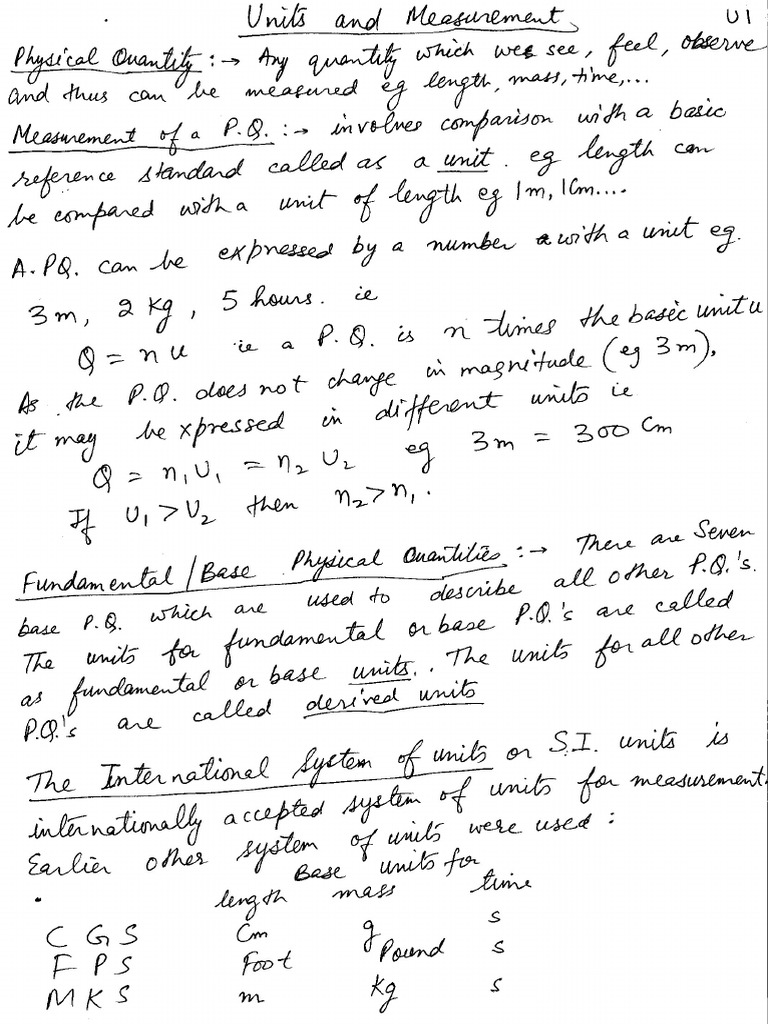 Units and Measurement U1
Physical Quantity :→ Any quantity which we see, feel, observe
and thus can be measured eg length, mass, time,...
Measurement of a P.Q. :→ involves comparison with a basic
reference standard called as a unit. eg length can
be compared with a unit of length eg 1m, 1Cm....
A. PQ. can be expressed by a number with a unit eg.
3m, 2 Kg, 5 hours. ie
Q = n u ie a P.Q. is n times the basic unit u
As the P.Q. does not change in magnitude (eg 3m),
it may be xpressed in different units ie
Q = n₁U₁ = n₂ U₂ eg 3m = 300 Cm
If U₁ > U₂ then n₂ > n₁.
Fundamental/Base Physical Quantities :→ There are Seven
base P.Q. which are used to describe all other P.Q.'s.
The units for fundamental or base P.Q.'s are called
as fundamental or base units. The units for all other
P.Q.'s are called derived units
The International System of units or S.I. units is
internationally accepted system of units for measurement.
Earlier other system of units were used :
Base units for
length mass time
C G S Cm g s
F P S Foot Pound s
M K S m Kg s